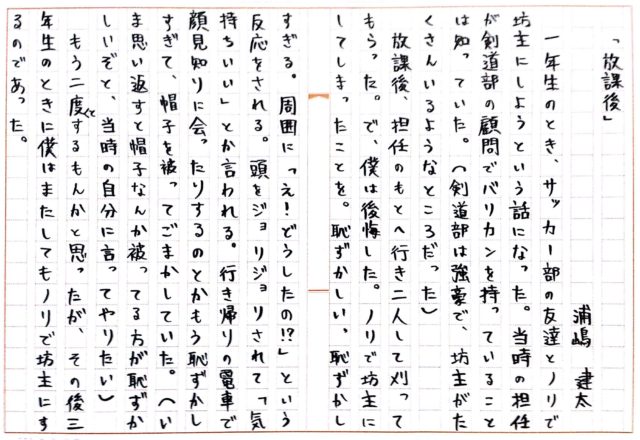 「放課後」
浦嶋 建太
一年生のとき、サッカー部の友達とノリで
坊主にしようという話になった。当時の担任
が剣道部の顧問でバリカンを持っていること
は知っていた。（剣道部は強豪で、坊主がた
くさんいるようなところだった）
放課後、担任のもとへ行き二人して刈って
もらった。で、僕は後悔した。ノリで坊主に
してしまったことを。恥ずかしい。恥ずかし
すぎる。周囲に「え！どうしたの!?」という
反応をされる。頭をジョリジョリされて「気
持ちいい」とか言われる。行き帰りの電車で
顔見知りに会ったりするのとかもう恥ずかし
すぎて、帽子を被ってごまかしていた。（い
ま思い返すと帽子なんか被ってる方が恥ずか
しいぞと、当時の自分に言ってやりたい）
もう二度とするもんかと思ったが、その後三
年生のときに僕はまたしてもノリで坊主にす
るのであった。